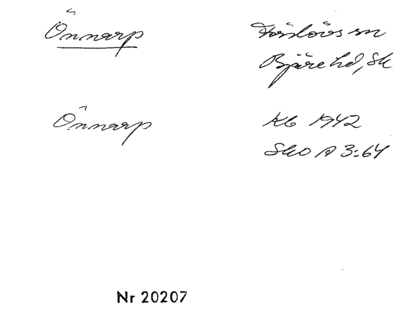 Önnarp Förslövs sn
Bjäre hd, Sk
Önnarp Kb 1942
SkO A 3:64
Nr 20207